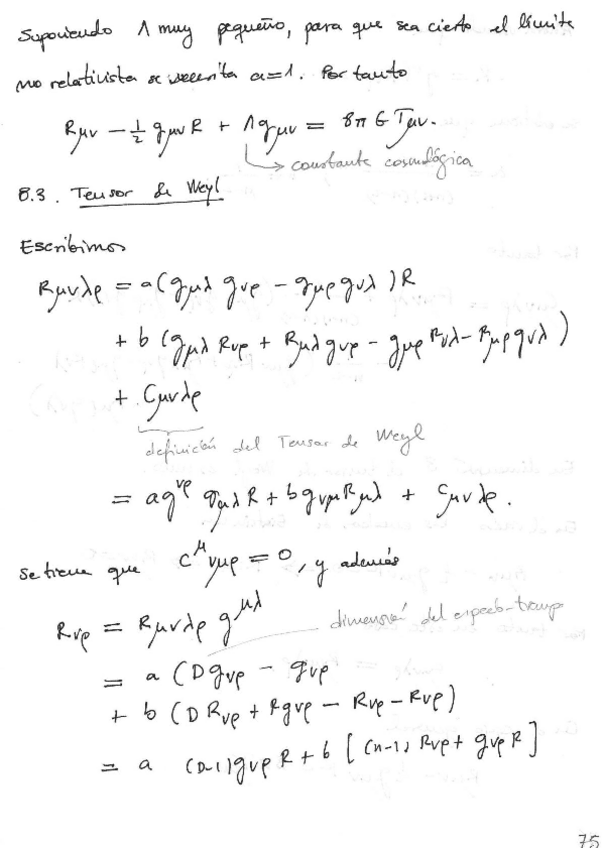 Suponiendo Λ muy pequeño, para que sea cierto el límite
no relativista se necesita a=1. Por tanto
Rμν − ½ gμν R + Λ gμν = 8π G Tμν.
↳ constante cosmológica
8.3. Tensor de Weyl
Escribimos
Rμνλρ = a (gμλ gνρ − gμρ gνλ) R
+ b (gμλ Rνρ + Rμλ gνρ − gμρ Rνλ − Rμρ gνλ)
+ Cμνλρ
definición del Tensor de Weyl
= a g^νρ gμλ R + b gνμ Rμλ + Cμνλρ.
Se tiene que C^μ νμρ = 0, y además
Rνρ = Rμνλρ g^μλ
dimensión del espacio-tiempo
= a (D gνρ − gνρ
+ b (D Rνρ + R gνρ − Rνρ − Rνρ)
= a (D-1) gνρ R + b [(n-1) Rνρ + gνρ R]
75